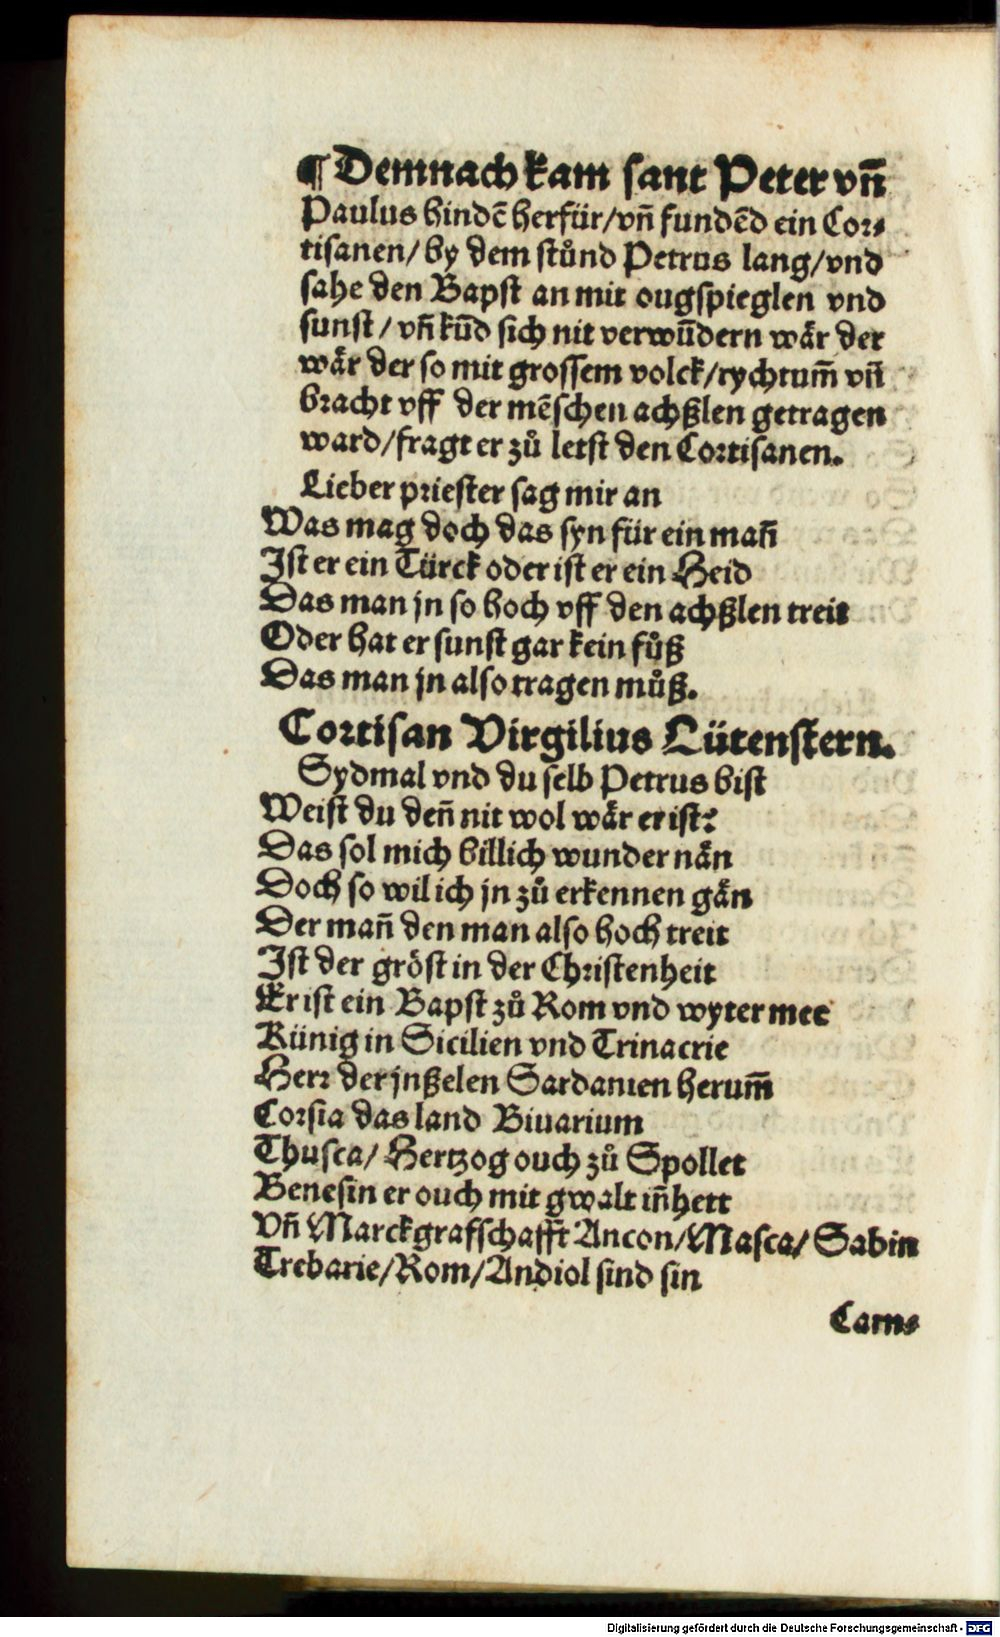 ¶ Demnach kam sant Peter vñ
Paulus hindē herfür/vñ fundēd ein Cor⸗
tisanen/by dem stůnd Petrus lang/vnd
sahe den Bapst an mit ougspieglen vnd
sunst/vñ kūd sich nit verwūdern wär der
wär der so mit grossem volck/rychtum̄ vñ
bracht vff der mēschen achßlen getragen
ward/fragt er zů letst den Cortisanen.
Lieber priester sag mir an
Was mag doch das syn für ein mañ
Ist er ein Türck oder ist er ein Heid
Das man jn so hoch vff den achßlen treit
Oder hat er sunst gar kein fůß
Das man jn also tragen můß.
Cortisan Virgilius Lütenstern.
Sydmal vnd du selb Petrus bist
Weist du deñ nit wol wär er ist?
Das sol mich billich wunder nän
Doch so wil ich jn zů erkennen gän
Der mañ den man also hoch treit
Ist der gröst in der Christenheit
Er ist ein Bapst zů Rom vnd wyter mee
Künig in Sicilien vnd Trinacrie
Herr der jnßelen Sardanien herum̄
Corsia das land Biuarium
Thusca/Hertzog ouch zů Spollet
Benesin er ouch mit gwalt iñhett
Vñ Marckgrafschafft Ancon/Masca/Sabin
Trebarie/Rom/Andiol sind sin
Cam⸗
Digitalisierung gefördert durch die Deutsche Forschungsgemeinschaft - DFG